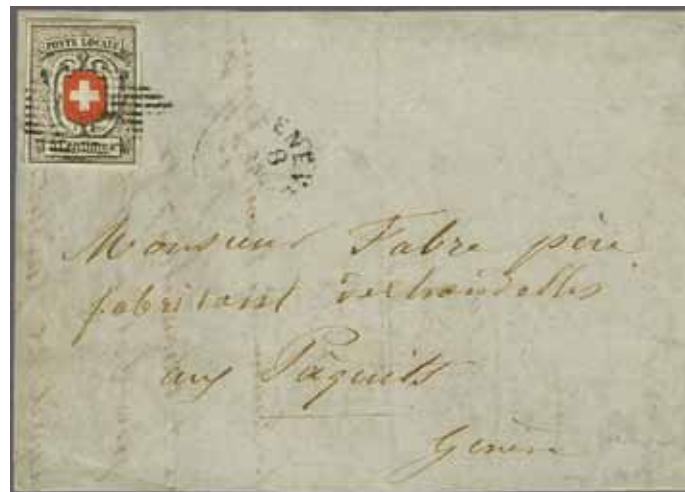 POSTE LOCALE
5 Centimes
GENÈV
8
Monsieur Fabre père
fabricant de chandelles
aux Pâquis
Genève